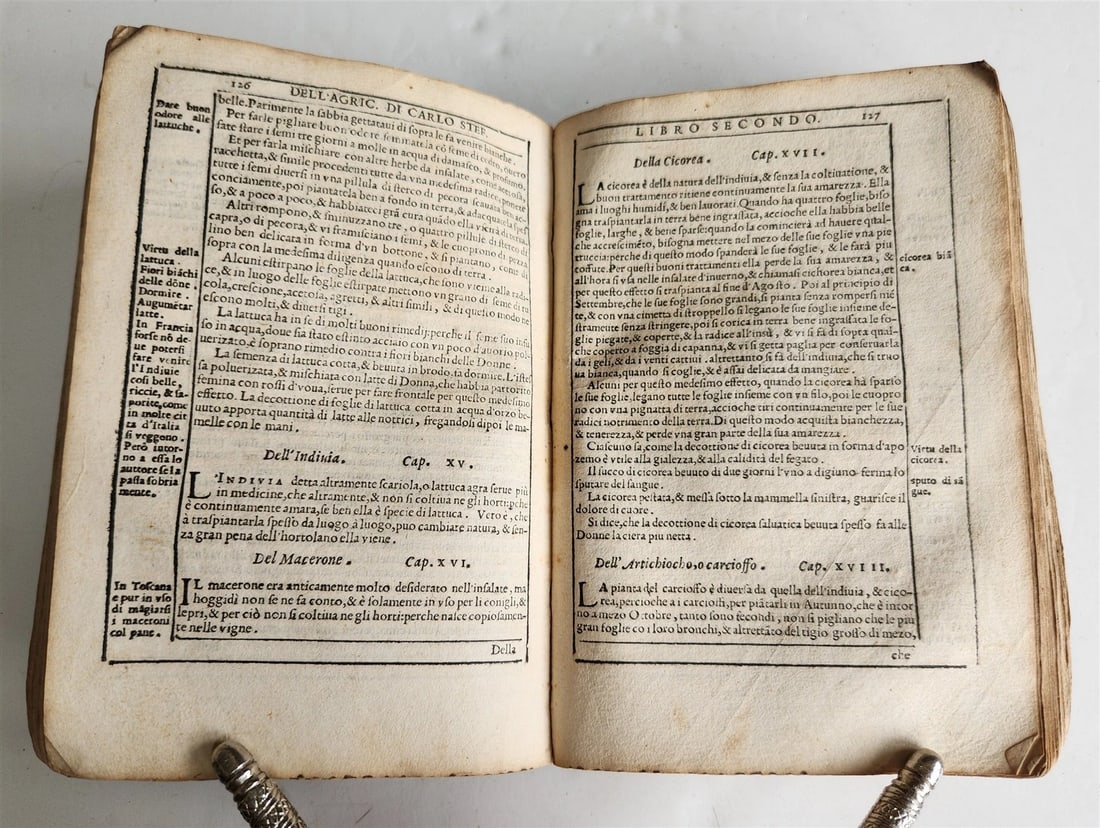 126
DELL'AGRIC. DI CARLO STEF.
Dare buon
odore alle
lattuche.
belle. Parimente la sabbia gettataui di sopra le fa venire bianche.
Per farle pigliare buon odore
fate stare i semi tre giorni a molle in acqua di damasco, & profumo.
Et per farla mischiare con altre herbe da insalate, come acetosa,
racchetta, & simile procedenti tutte da vna medesima radice, ponete
tutte i semi diuersi in vna pillula di sterco di pecora scauata ben ac-
conciamente, poi piantatela ben a fondo in terra, & adacquatela spes
so, & a poco a poco, & habbiateci grã cura quãdo ella viẽ
Altri rompono, & sminuzzano tre, o quattro pillule di sterco di
capra, o di pecora, & vi framisciano i semi, & le cuopono di pezza
lino ben delicata in forma d'vn bottone, & si piantano, come di
sopra con la medesima diligenza quando escono di terra.
Alcuni estirpano le foglie della lattuca, che sono vicine alla radi-
ce, & in luogo delle foglie estirpate mettono vn grano di seme di ru
cola, crescione, acetosa, agretti, & altri simili, & di questo modo ne
escono molti, & diuersi tigi.
Virtu della
lattuca.
Fiori biãchi
delle dõne.
Dormire.
Augumẽtar
latte.
In Francia
forse nõ de-
ue potersi
fare venire
l'Indiuie
cosi belle,
riccie, & sa-
porite, come
in molte cit
ta d'Italia
si veggono.
Però intor-
no a essa lo
auttore se la
passa sobria
mente.
La lattuca ha in se di molti buoni rimedij: perche il seme suo infu
so in acqua, doue sia stato estinto acciaio con vn poco d'auorio pol-
uerizato, è soprano rimedio contra i fiori bianchi delle Donne.
La semenza di lattuca cotta, & beuuta in brodo, fa dormire. L'istes
sa poluerizata, & mischiata con latte di Donna, che habbia partorito
femina con rossi d'voua, serue per fare frontale per questo medesimo
effetto. La decottione di foglie di lattuca cotta in acqua d'orzo be-
uuto apporta quantità di latte alle nottrici, fregandosi dipoi le ma-
melle con le mani.
Dell'Indiuia. Cap. XV.
L'INDIVIA detta altramente scariola, o lattuca agra serue più
in medicine, che altramente, & non si coltiua ne gli horti: pche
è continuamente amara, se ben ella è specie di lattuca. Vero è, che
à traspiantarla spesso da luogo à luogo, puo cambiare natura, & sen-
za gran pena dell'hortolano ella viene.
Del Macerone. Cap. XVI.
In Toscana
e pur in vso
di mãgiarsi
i maceroni
col pane.
IL macerone era anticamente molto desiderato nell'insalate, ma
hoggidì non se ne fa conto, & è solamente in vso per li conigli, &
lepri, & per ciò non si coltiua ne gli horti: perche nasce copiosamen-
te nelle vigne.
Della
LIBRO SECONDO.
127
Della Cicorea. Cap. XVII.
LA cicorea è della natura dell'indiuia, & senza la coltiuatione, &
buon trattamento ritiene continuamente la sua amarezza. Ella
ama i luoghi humidi, & ben lauorati. Quando ha quattro foglie, biso
gna traspiantarla in terra bene ingrassata, accioche ella habbia belle
foglie, larghe, & bene sparse: quando la comincierà ad hauere qual-
che accrescimẽto, bisogna mettere nel mezo delle sue foglie vna pie
truccia: perche di questo modo spanderà le sue foglie, & le farà piu
cossute. Per questi buoni trattamenti ella perde la sua amarezza, &
all'hora si vsa nelle insalate d'inuerno, & chiamasi cichorea bianca, et
per questo effetto si traspianta al fine d'Agosto. Poi al principio di
Settembre, che le sue foglie sono grandi, si pianta senza rompersi niẽ
te, & con vna cimetta di stroppello si legano le sue foglie insieme de-
stramente senza stringere, poi si corica in terra bene ingrassata le fo-
glie piegate, & coperte, & la radice all'insù, & vi si fà di sopra qual-
che coperto a foggia di capanna, & vi si getta paglia per conseruarla
da i geli, & da i venti cattiui. altrettanto si fà dell'indiuia, che si truo
ua bianca, quando si coglie, & è assai delicata da mangiare.
cicorea biã
ca.
Alcuni per questo medesimo effetto, quando la cicorea hà sparso
le sue foglie, legano tutte le foglie insieme con vn filo, poi le cuopro
no con vna pignatta di terra, accioche tiri continuamente per le sue
radici notrimento della terra. Di questo modo acquista bianchezza,
& tenerezza, & perde vna gran parte della sua amarezza.
Ciascuno sa, come la decottione di cicorea beuuta in forma d'apo
zemo è vtile alla gialezza, & alla calidità del fegato.
Virtu della
cicorea.
Il succo di cicorea beuuto di due giorni l'vno a digiuno ferma lo
sputare del sangue.
sputo di sã
gue.
La cicorea pestata, & messa sotto la mammella sinistra, guarisce il
dolore di cuore.
Si dice, che la decottione di cicorea saluatica beuuta spesso fa alle
Donne la ciera piu netta.
Dell'Artichiocho, o carcioffo. Cap. XVIII.
LA pianta del carcioffo è diuersa da quella dell'indiuia, & cico-
rea, percioche a i carcioffi, per piãtarli in Autunno, che è intor
no a mezo Ottobre, tanto sono fecondi, non si pigliano che le piu
gran foglie co i loro bronchi, & altrettãto del tigio grosso di mezo,
che